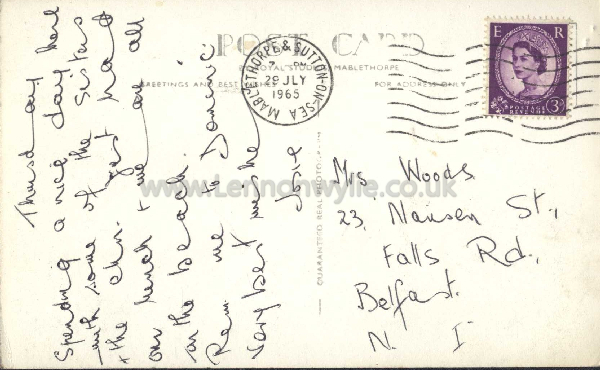 POST CARD
ROYAL STUDIO, MABLETHORPE
GREETINGS AND BEST WISHES
FOR ADDRESS ONLY
MABLETHORPE & SUTTON-ON-SEA
29 JLY
1965
E R
3D
POSTAGE
REVENUE
GUARANTEED REAL PHOTO
www.Lennonwylie.co.uk
Thursday
Spending a nice day here
with some of the Sisters
+ the chn. Just had
our lunch + we are all
on the beach.
Rem. me to Dominic
Very best wishes
Josie
Mrs Woods
23, Nansen St.,
Falls Rd.,
Belfast.
N. I